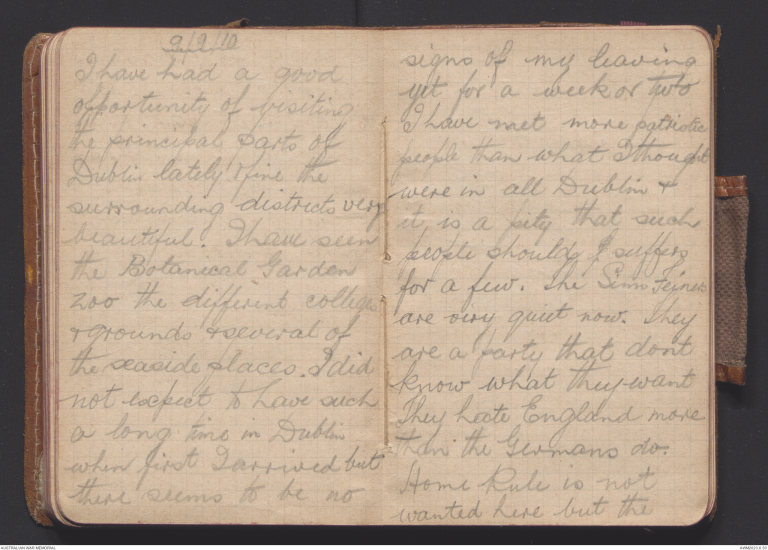 2/2/18
I have had a good
opportunity of visiting
the principal parts of
Dublin lately & fine the
surrounding districts very
beautiful. I have seen
the Botanical Garden
zoo the different colleges
& grounds & several of
the seaside places. I did
not expect to have such
a long time in Dublin
when first I arrived but
there seems to be no
signs of my leaving
yet for a week or two
I have met more patriotic
people than what I thought
were in all Dublin &
it is a pity that such
people should suffers
for a few. The Sinn Feiners
are very quiet now. They
are a party that dont
know what they want
They hate England more
than the Germans do.
Home Rule is not
wanted here but the
AUSTRALIAN WAR MEMORIAL